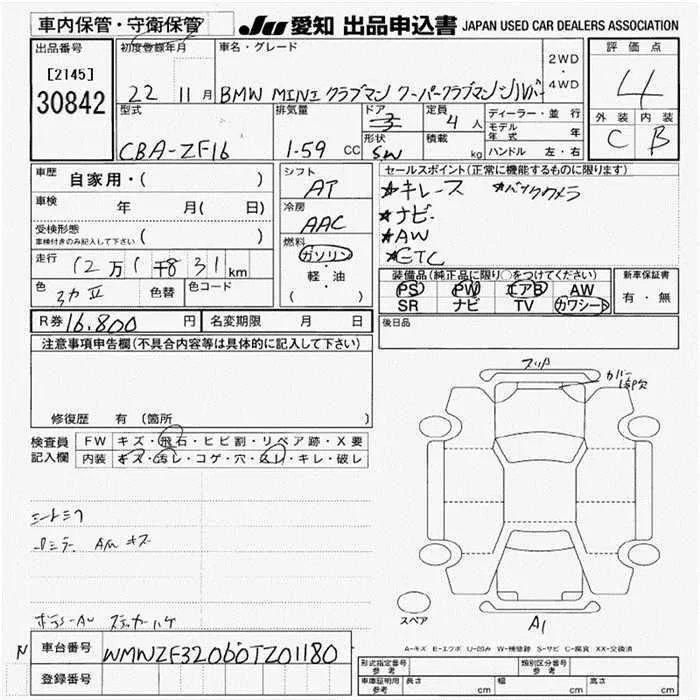 車内保管・守衛保管 JU 愛知 出品申込書 JAPAN USED CAR DEALERS ASSOCIATION
出品番号 初度登録年月 車名・グレード 2WD・4WD 評価点
[2145]
30842
22 11月 BMW MINI クラブマン クーパークラブマン 4
型式 排気量 ドア 定員 ディーラー・並行 外装 内装
CBA-ZF16 1.59 CC 4人 モデル年式 年 C B
形状 積載 ハンドル 左・右
SW kg
車歴 自家用・( ) シフト セールスポイント(正常に機能するものに限ります)
AT ★キレース ★バックカメラ
車検 年 月( 日) 冷房 ★ナビ
AAC ★AW
受検形態 ( ) ★ETC
車検付きのみ記入して下さい
燃料
走行 12万1千831km ガソリン・軽・油
( )
装備品(純正品に限り○をつけてください) 新車保証書
色 色替 色コード PS PW エアB AW 有・無
SR ナビ TV カワシート
R券 16,800円 名変期限 月 日 後日品
注意事項申告欄(不具合内容等は具体的に記入して下さい)
スリP カバー
修復歴 有 (箇所
検査員 FW キズ・飛石・ヒビ割・リペア跡・X要
記入欄 内装 キズ・汚レ・コゲ・穴・スレ・キレ・破レ
シートミワ
ミラー AM キズ
ステッカーハゲ
スペア
A1
A-キズ E-エクボ U-凹み W-補修跡 S-サビ C-腐食 XX-交換済
N 車台番号 WMWZF32060TZ01180
登録番号
形式指定番号 参考 類別区分番号 参考
車庫証明用 参考 長さ cm 幅 cm 高さ cm